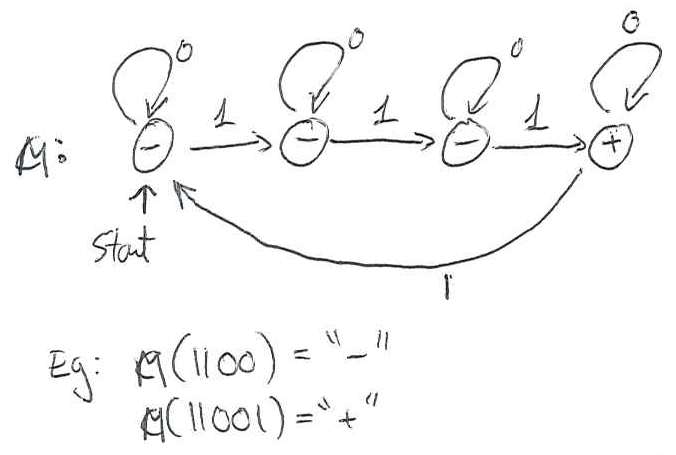 0 0 0 0
1 1 1
M: - - - +
Start
1
Eg: M(1100) = "-"
M(11001) = "+"